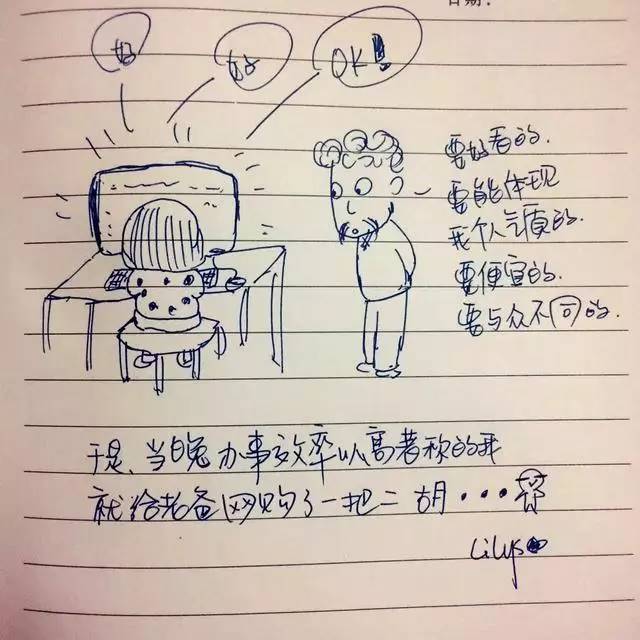 日期:
好
好
OK!
要好看的.
要能体现
我个人气质的.
要便宜的.
要与众不同的.
于是、当晚办事效率以高著称的我
就给老爸网购了一把二胡・・・
Lilys